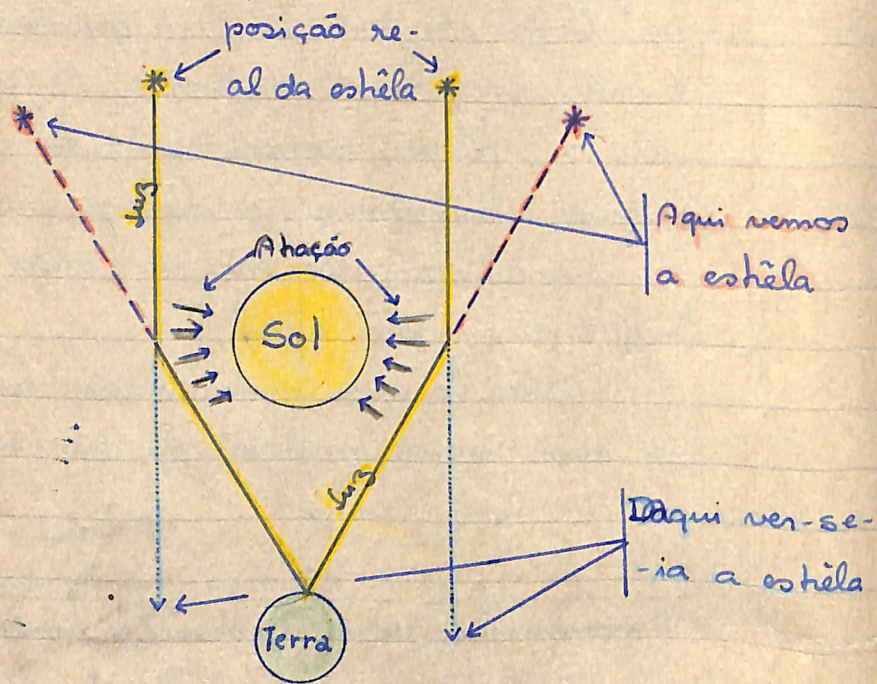 posição re-
al da estrêla
luz
Atração
Sol
Aqui vemos
a estrêla
luz
Daqui ver-se-
-ia a estrêla
Terra